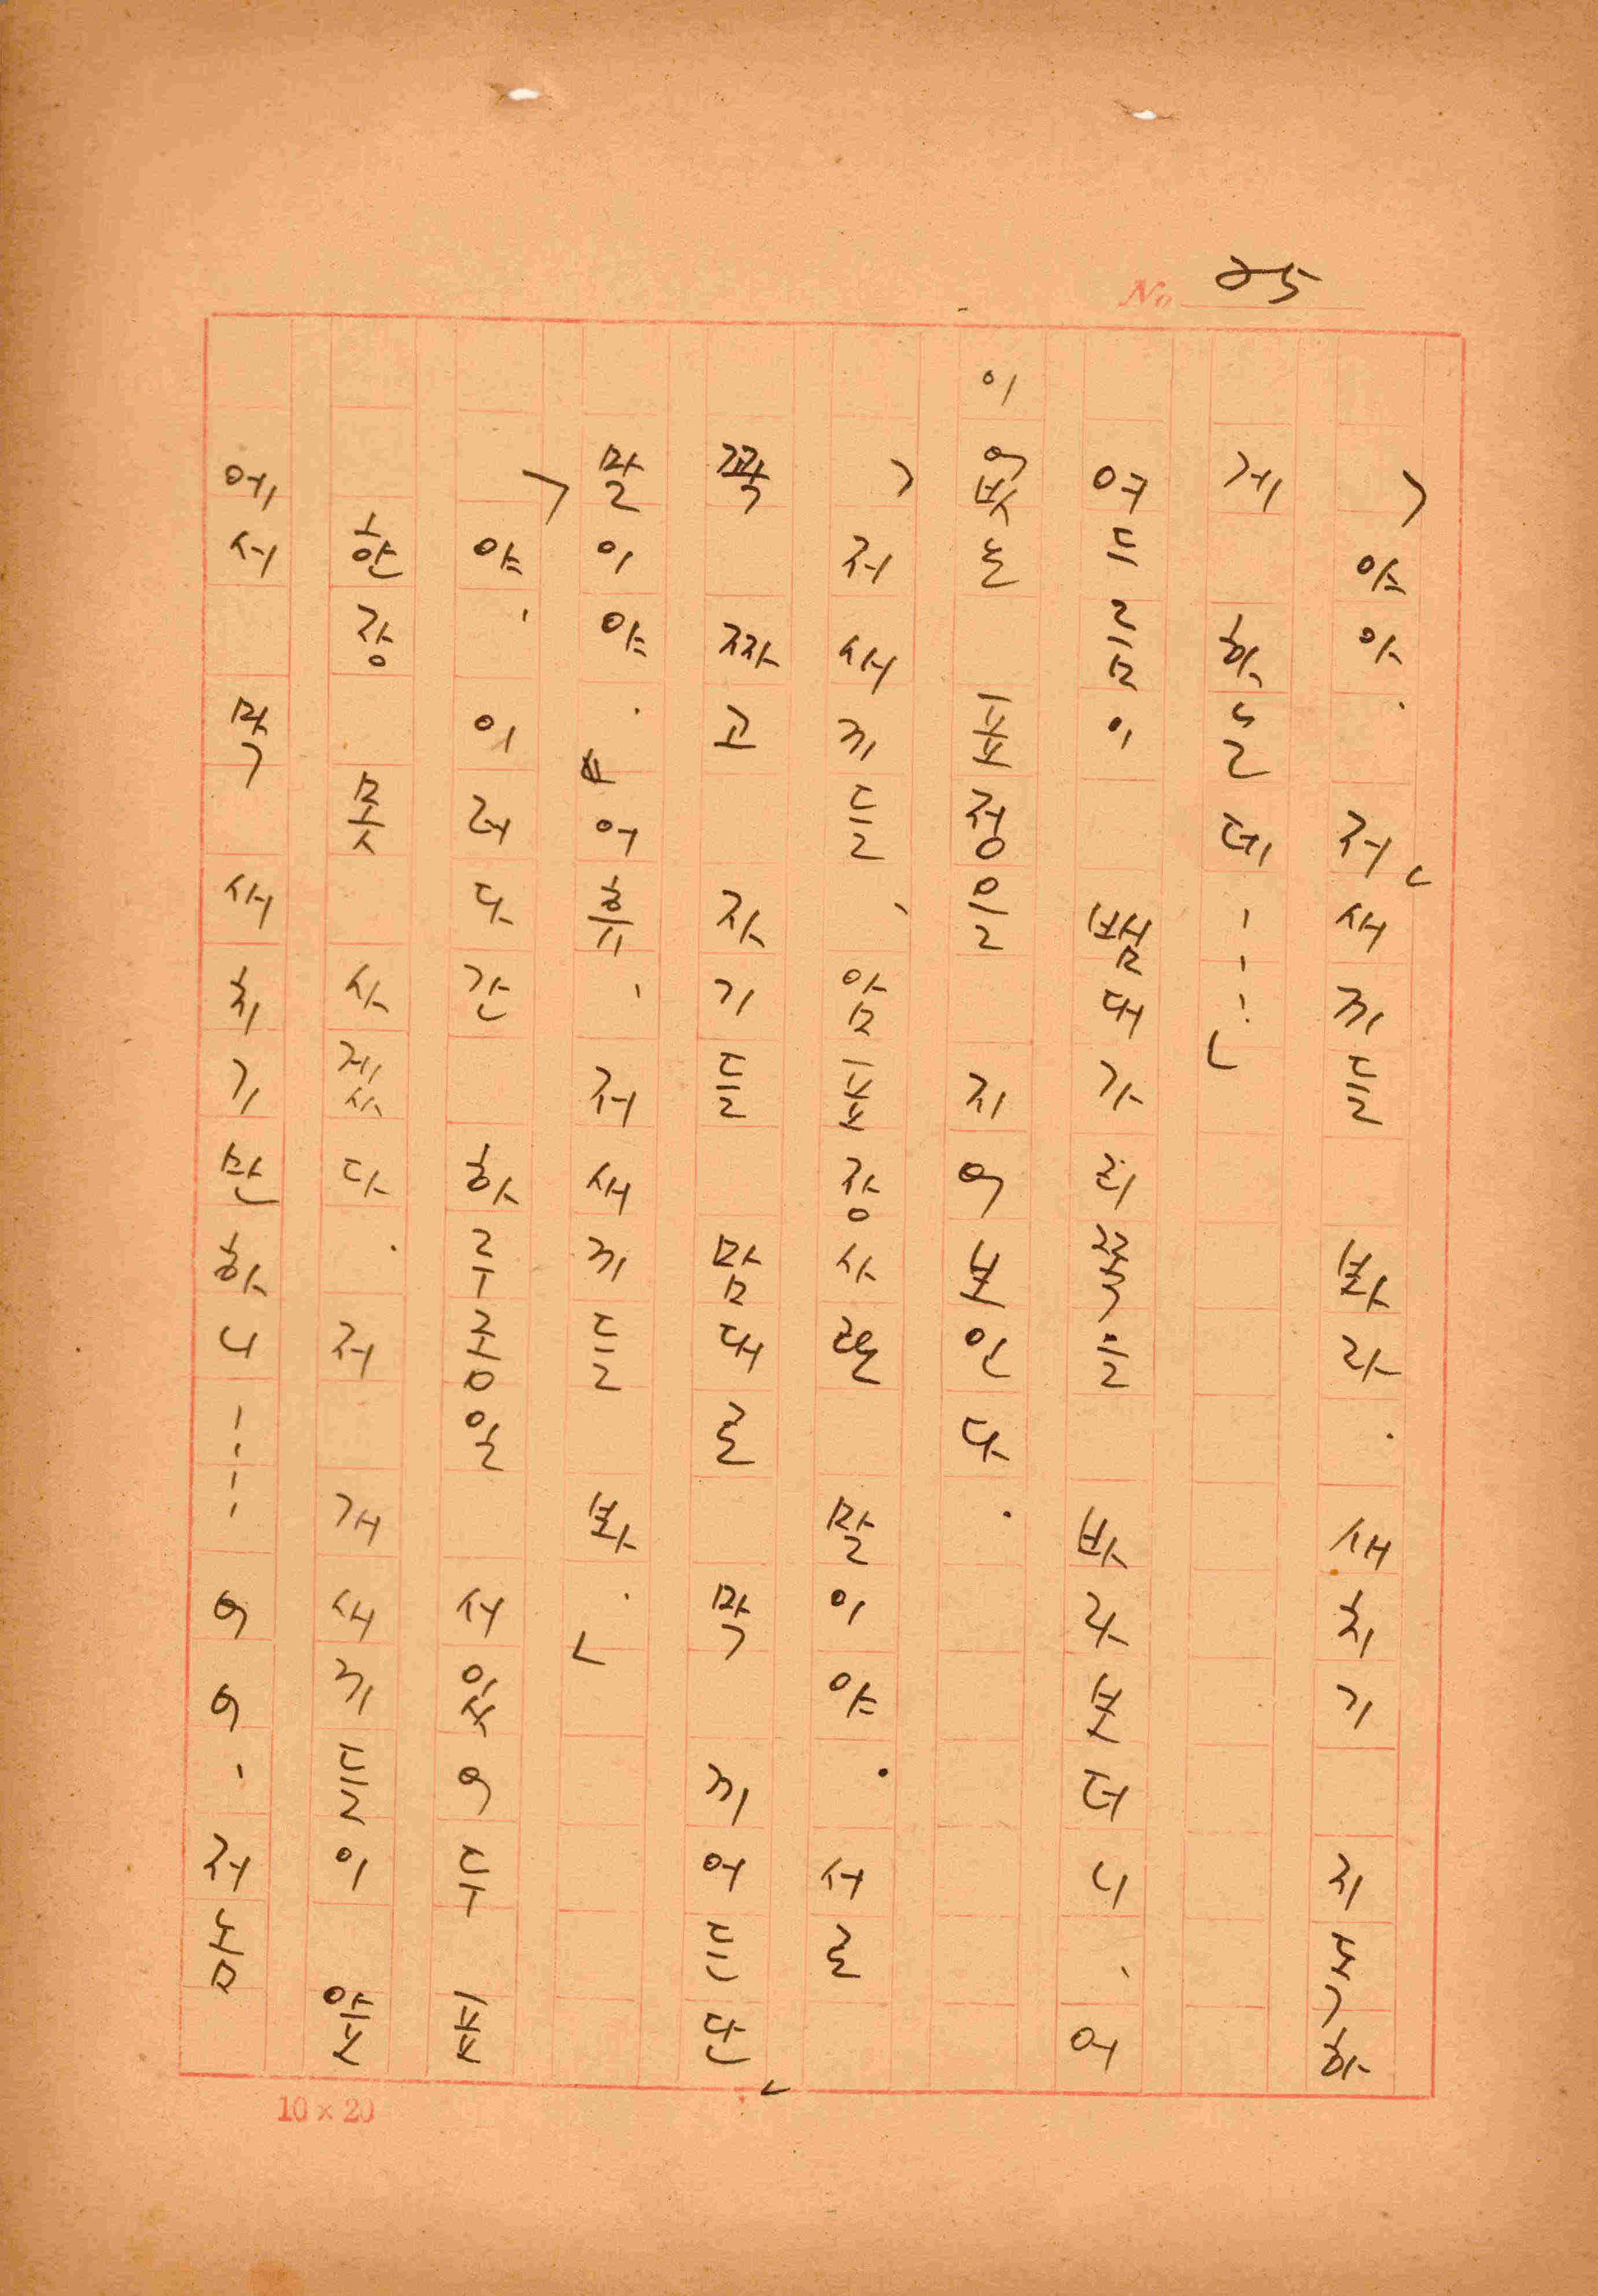 No 25
「야아. 저새끼들 봐라. 새치기 지독하
게 하는데……」
여드름이 뱀대가리쪽을 바라봤더니, 어
이없는 표정을 지어보인다.
「저새끼들, 암표장사란 말이야. 서로
꽉 짜고 자기들 맘대로 막 끼어든단
말이야. 어휴, 저새끼들 봐.」
「야, 이러다간 하루종일 서있어두 표
한장 못 사겠다. 저 개새끼들이 앞
에서 막 새치기만하니……어어, 저놈
10×20